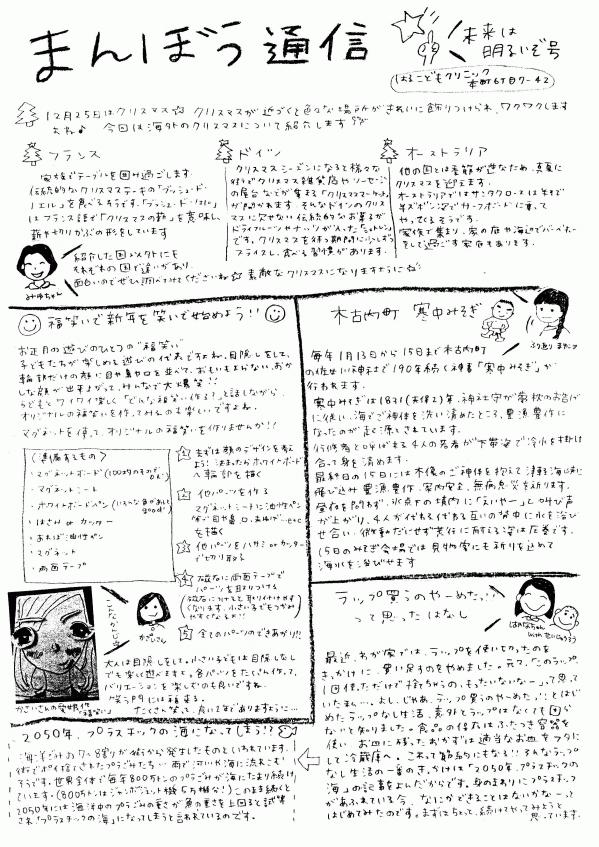 まんぼう通信
未来は
明るいぞ号
はるこどもクリニック
本町6丁目7-42
12月25日はクリスマス☆ クリスマスが近づくと色々な場所がきれいに飾りつけられ、ワクワクします
よね♪ 今回は海外のクリスマスについて紹介します
フランス
家族でテーブルを囲み過ごします。
伝統的なクリスマスケーキの「ブッシュ・ド・
ノエル」を食べるそうです。「ブッシュ・ド・ノエル」
はフランス語で「クリスマスの薪」を意味し、
薪や切りかぶの形をしています
ドイツ
クリスマスシーズンになると様々な
街でクリスマス雑貨店やソーセージ
の屋台などが集まる「クリスマスマーケット」
が開かれます。そんなドイツのクリス
マスに欠せない伝統的なお菓子が
ドライフルーツやナッツが入った「シュトレン」
です。クリスマスを待つ期間に少しずつ
スライスし、食べる習慣があります。
オーストラリア
他の国とは季節が逆なため、真夏に
クリスマスを迎えます。
オーストラリアではサンタクロースは半そで
半ズボン姿でサーフボードに乗って
やってくるそうです。
家族で集まり、家の庭や海辺でバーベキュー
をして過ごす家庭もあります。
紹介した国以外にも
それぞれの国で違いがあり
面白いのでぜひ調べてみてくださいね☆ 素敵なクリスマスになりますように
みゆちゃん
福笑いで新年を笑いで始めよう!!
お正月の遊びのひとつの"福笑い"
子どもたちが楽しめる遊びの代表ですよね。目隠しをして、
輪郭だけの顔に目や鼻や口を並べて、おもいもよらない、おか
しな顔が出来上がって、みんなで大爆笑!!
子どもとワイワイ楽しく「どんな福笑い作る?」と話しながら、
オリジナルの福笑いを作ってみるのも楽しいですよね。
マグネットを使って、オリジナルの福笑いを作りませんか!!
〈準備するもの〉
・マグネットボード(100均のものでOK)
・マグネットシート
・ホワイトボードペン(いろんな色があると good)
・はさみ or カッター
・あれば油性ペン
・マグネット
・両面テープ
1 まずは顔のデザインを考え
よう! 決まったらホワイトボード
へ輪郭を描く
2 他パーツを作る
マグネットシートに油性ペン
等で目や鼻、口、まゆげ…etc
を描く
3 他パーツをハサミ or カッター
で切り取る
4 磁石に両面テープで
パーツを取りつける
5 全てのパーツのできあがり!!
こんなかんじ
大人は目隠しをして。小さい子どもは目隠しなし
でも楽しく遊べます。各パーツをたくさん作って、
バリエーションを楽しむのも良いですね。
"笑う門には福来る"
たくさん笑って、良い1年でありますように…
木古内町 寒中みそぎ
毎年1月13日から15日まで木古内町
の佐女川神社で190年続く神事「寒中みそぎ」が
行われます。
寒中みそぎは1831(天保2)年、神社守が夢枕のお告げ
に従い、海でご神体を洗い清めたところ、豊漁豊作に
なったのが起こりとされています。
行修者と呼ばれる4人の若者が下帯姿で冷水を掛け
合って身を清めます。
最終日の15日には本殿のご神体を抱えて津軽海峡に
飛び込み豊漁豊作、家内安全、無病息災を祈ります。
氷点下の境内に「えいやー」と叫び声
が上がり、4人が代わる代わる互いの背中に水を浴び
せ合い、微動だにせず苦行に耐える姿は圧巻です。
15日のみそぎ会場では見物客にも祈りを込めて
海水を浴びせます
ラップ買うのやーめた
って思ったはなし
はるなちゃん
最近、わが家では、ラップを使い切ったのを
きっかけに、買い足すのをやめました。元々、「このラップ、
1回使っただけで捨ちゃうの、もったいないなー」って思って
いたまん…。よし、じゃあ、ラップ買うのやーめた。とはじ
めたラップなし生活、意外とラップはなくても困ら
ないと知りました。食品の保存はふたつき容器を
使い お皿に残ったおかずは適当なお皿をフタに
して冷蔵庫へ。これって節約にもなる!! そんなラップ
なし生活の一番のきっかけは「2050年、プラスチックの
海」の記事をよんだからです。身のまわりにプラスチック
があふれている今、なにかできることはないかなーって
はじめてみたのです。まずはちょっと、続けてやってみようと
思っています。
2050年、プラスチックの海になってしまう!?
海洋ごみのうち8割が街から発生したものといわれています。
街でポイ捨てされたプラごみたち…雨で河川や海に流れこむ
そうです。世界全体で毎年800万tのプラごみが海にたまり続け
ています!(800万tはジャンボジェット機5万機分!)このまま続くと
2050年には海洋中のプラごみの重さが魚の重さを上回ると試算
され「プラスチックの海」になってしまうと言われているのです。